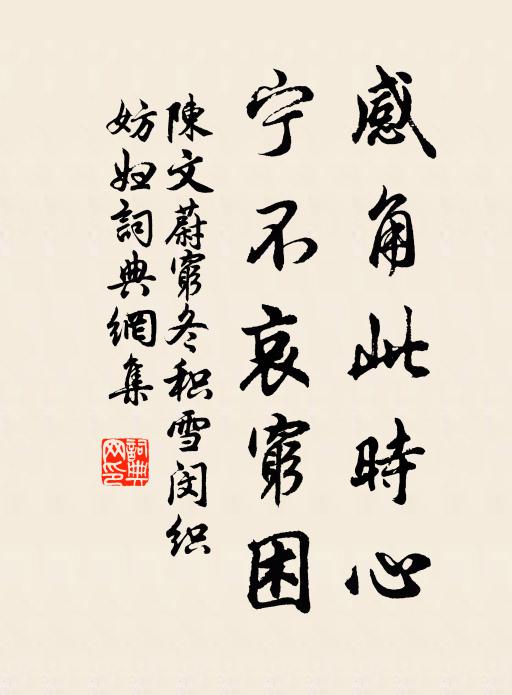 感角此時心
宁不哀窮困
陳文蔚窮冬积雪闵织
妨妇詞典網集
詞典
网印